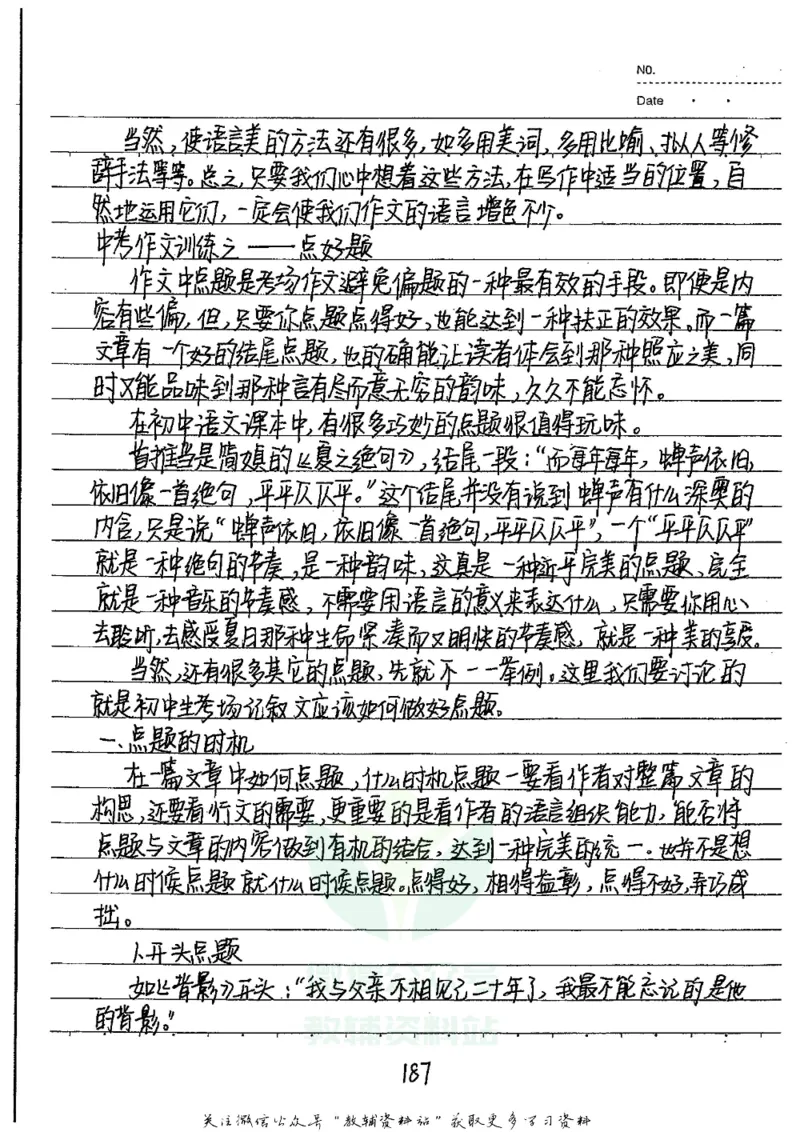 NO.
Date
当然，使语言美的方法还有很多，如多用美词，多用比喻、拟人等修
辞手法等等。总之，只要我们心中想着这些方法，在写作中适当的位置，自
然地运用它们，一定会使我们作文的语言增色不少。
中考作文训练之——点好题
作文中点题是考场作文避免偏题的一种最有效的手段。即便是内
容有些偏，但，只要你点题点得好，也能达到一种扶正的效果。而一篇
文章有一个好的结尾点题，也的确能让读者体会到那种照应之美，同
时又能品味到那种言有尽而意无穷的韵味，久久不能忘怀。
在初中语文课本中，有很多巧妙的点题很值得玩味。
首推当是简媜的《夏之绝句》，结尾一段：“而每年每年，蝉声依旧，
依旧像一首绝句，平平仄仄平。”这个结尾并没有说到蝉声有什么深奥的
内含，只是说“蝉声依旧，依旧像一首绝句，平平仄仄平”，一个“平平仄仄平”
就是一种绝句的节奏，是一种韵味，这真是一种近乎完美的点题、完全
就是一种音乐的节奏感，不需要用语言的意义来表达什么，只需要你用心
去聆听，去感受夏日那种生命紧凑而又明快的节奏感，就是一种美的享受。
当然，还有很多其它的点题，先就不一一举例。这里我们要讨论的
就是初中生考场记叙文应该如何做好点题。
一、点题的时机
在一篇文章中如何点题，什么时机点题一要看作者对整篇文章的
构思，还要看行文的需要，更重要的是看作者的语言组织能力，能否将
点题与文章的内容做到有机的结合，达到一种完美的统一。也并不是想
什么时候点题就什么时候点题。点得好，相得益彰，点得不好，弄巧成
拙。
1、开头点题
如《背影》开头：“我与父亲不相见已二十年了，我最不能忘记的是他
的背影。”
教辅资料站
187
关注微信公众号“教辅资料站”获取更多学习资料